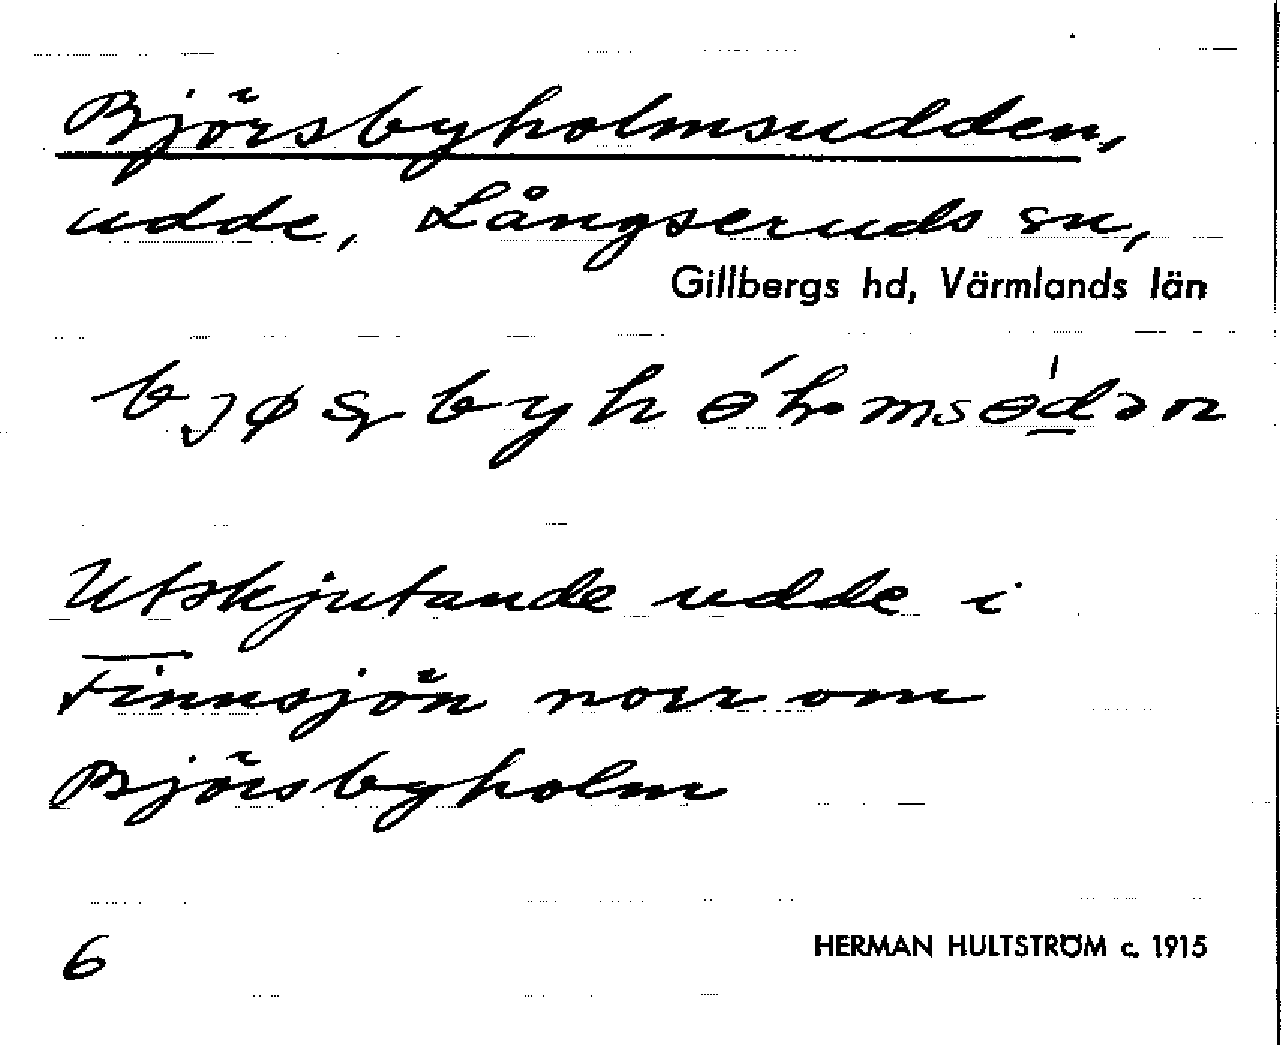 Björsbyholmsudden,
udde, Långseruds sn,
Gillbergs hd, Värmlands län
Utskjutande udde i
Finnsjön norr om
Björsbyholm
6
HERMAN HULTSTRÖM c. 1915